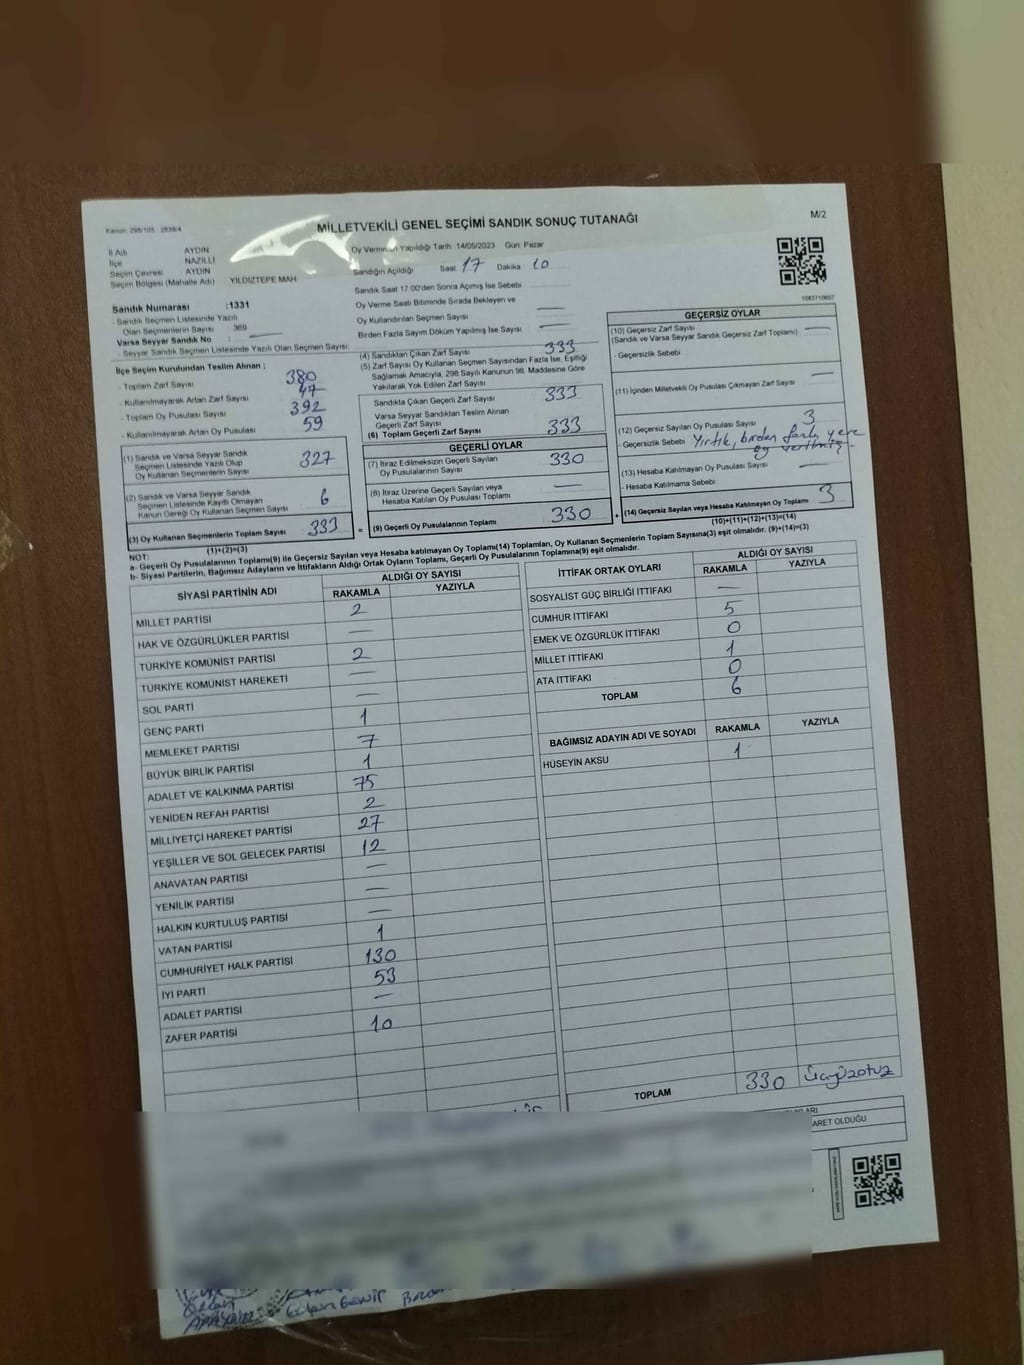 Kanun: 298/105 2839/4
MİLLETVEKİLİ GENEL SEÇİMİ SANDIK SONUÇ TUTANAĞI
M/2
İl Adı AYDIN
İlçe NAZİLLİ
Seçim Çevresi AYDIN
Seçim Bölgesi (Mahalle Adı) YILDIZTEPE MAH.
Oy Vermenin Yapıldığı Tarih :14/05/2023 Gün: Pazar
Sandığın Açıldığı Saat: 17 Dakika: 10
Sandık Saat 17:00'den Sonra Açımış İse Sebebi
Oy Verme Saati Bitiminde Sırada Bekleyen ve
Oy Kullandırılan Seçmen Sayısı —
Birden Fazla Sayım Döküm Yapılmış İse Sayısı —
Sandık Numarası :1331
- Sandık Seçmen Listesinde Yazılı
Olan Seçmenlerin Sayısı 369
Varsa Seyyar Sandık No :
- Seyyar Sandık Seçmen Listesinde Yazılı Olan Seçmen Sayısı:
İlçe Seçim Kurulundan Teslim Alınan ;
- Toplam Zarf Sayısı 380
- Kullanılmayarak Artan Zarf Sayısı 47
- Toplam Oy Pusulası Sayısı 392
- Kullanılmayarak Artan Oy Pusulası 59
(1) Sandık ve Varsa Seyyar Sandık
Seçmen Listesinde Yazılı Olup
Oy Kullanan Seçmenlerin Sayısı 327
(2) Sandık ve Varsa Seyyar Sandık
Seçmen Listesinde Kayıtlı Olmayan
Kanun Gereği Oy Kullanan Seçmen Sayısı 6
(3) Oy Kullanan Seçmenlerin Toplam Sayısı 333
(1)+(2)=(3)
(4) Sandıktan Çıkan Zarf Sayısı 333
(5) Zarf Sayısı Oy Kullanan Seçmen Sayısından Fazla İse, Eşitliği
Sağlamak Amacıyla, 298 Sayılı Kanunun 98. Maddesine Göre
Yakılarak Yok Edilen Zarf Sayısı
Sandıkta Çıkan Geçerli Zarf Sayısı 333
Varsa Seyyar Sandıktan Teslim Alınan
Geçerli Zarf Sayısı
(6) Toplam Geçerli Zarf Sayısı 333
GEÇERLİ OYLAR
(7) İtiraz Edilmeksizin Geçerli Sayılan
Oy Pusulalarının Sayısı 330
(8) İtiraz Üzerine Geçerli Sayılan veya
Hesaba Katılan Oy Pusulası Toplamı —
= (9) Geçerli Oy Pusulalarının Toplamı 330
1083710607
GEÇERSİZ OYLAR
(10) Geçersiz Zarf Sayısı
(Sandık ve Varsa Seyyar Sandık Geçersiz Zarf Toplamı) —
- Geçersizlik Sebebi
(11) İçinden Milletvekili Oy Pusulası Çıkmayan Zarf Sayısı —
(12) Geçersiz Sayılan Oy Pusulası Sayısı 3
- Geçersizlik Sebebi Yırtık, birden fazla yere
oy verilmiş
(13) Hesaba Katılmayan Oy Pusulası Sayısı —
- Hesaba Katılmama Sebebi
+ (14) Geçersiz Sayılan veya Hesaba Katılmayan Oy Toplamı 3
(10)+(11)+(12)+(13)=(14)
NOT:
a- Geçerli Oy Pusulalarının Toplamı(9) ile Geçersiz Sayılan veya Hesaba katılmayan Oy Toplamı(14) Toplamları, Oy Kullanan Seçmenlerin Toplam Sayısına(3) eşit olmalıdır. (9)+(14)=(3)
b- Siyasi Partilerin, Bağımsız Adayların ve İttifakların Aldığı Ortak Oyların Toplamı, Geçerli Oy Pusulalarının Toplamına(9) eşit olmalıdır.
SİYASİ PARTİNİN ADI ALDIĞI OY SAYISI
RAKAMLA YAZIYLA
MİLLET PARTİSİ 2
HAK VE ÖZGÜRLÜKLER PARTİSİ —
TÜRKİYE KOMÜNİST PARTİSİ 2
TÜRKİYE KOMÜNİST HAREKETİ —
SOL PARTİ —
GENÇ PARTİ 1
MEMLEKET PARTİSİ 7
BÜYÜK BİRLİK PARTİSİ 1
ADALET VE KALKINMA PARTİSİ 75
YENİDEN REFAH PARTİSİ 2
MİLLİYETÇİ HAREKET PARTİSİ 27
YEŞİLLER VE SOL GELECEK PARTİSİ 12
ANAVATAN PARTİSİ —
YENİLİK PARTİSİ —
HALKIN KURTULUŞ PARTİSİ —
VATAN PARTİSİ 1
CUMHURİYET HALK PARTİSİ 130
İYİ PARTİ 53
ADALET PARTİSİ —
ZAFER PARTİSİ 10
İTTİFAK ORTAK OYLARI ALDIĞI OY SAYISI
RAKAMLA YAZIYLA
SOSYALİST GÜÇ BİRLİĞİ İTTİFAKI —
CUMHUR İTTİFAKI 5
EMEK VE ÖZGÜRLÜK İTTİFAKI 0
MİLLET İTTİFAKI 1
ATA İTTİFAKI 0
TOPLAM 6
BAĞIMSIZ ADAYIN ADI VE SOYADI RAKAMLA YAZIYLA
HÜSEYİN AKSU 1
TOPLAM 330 Üçyüzotuz
ARET OLDUĞU